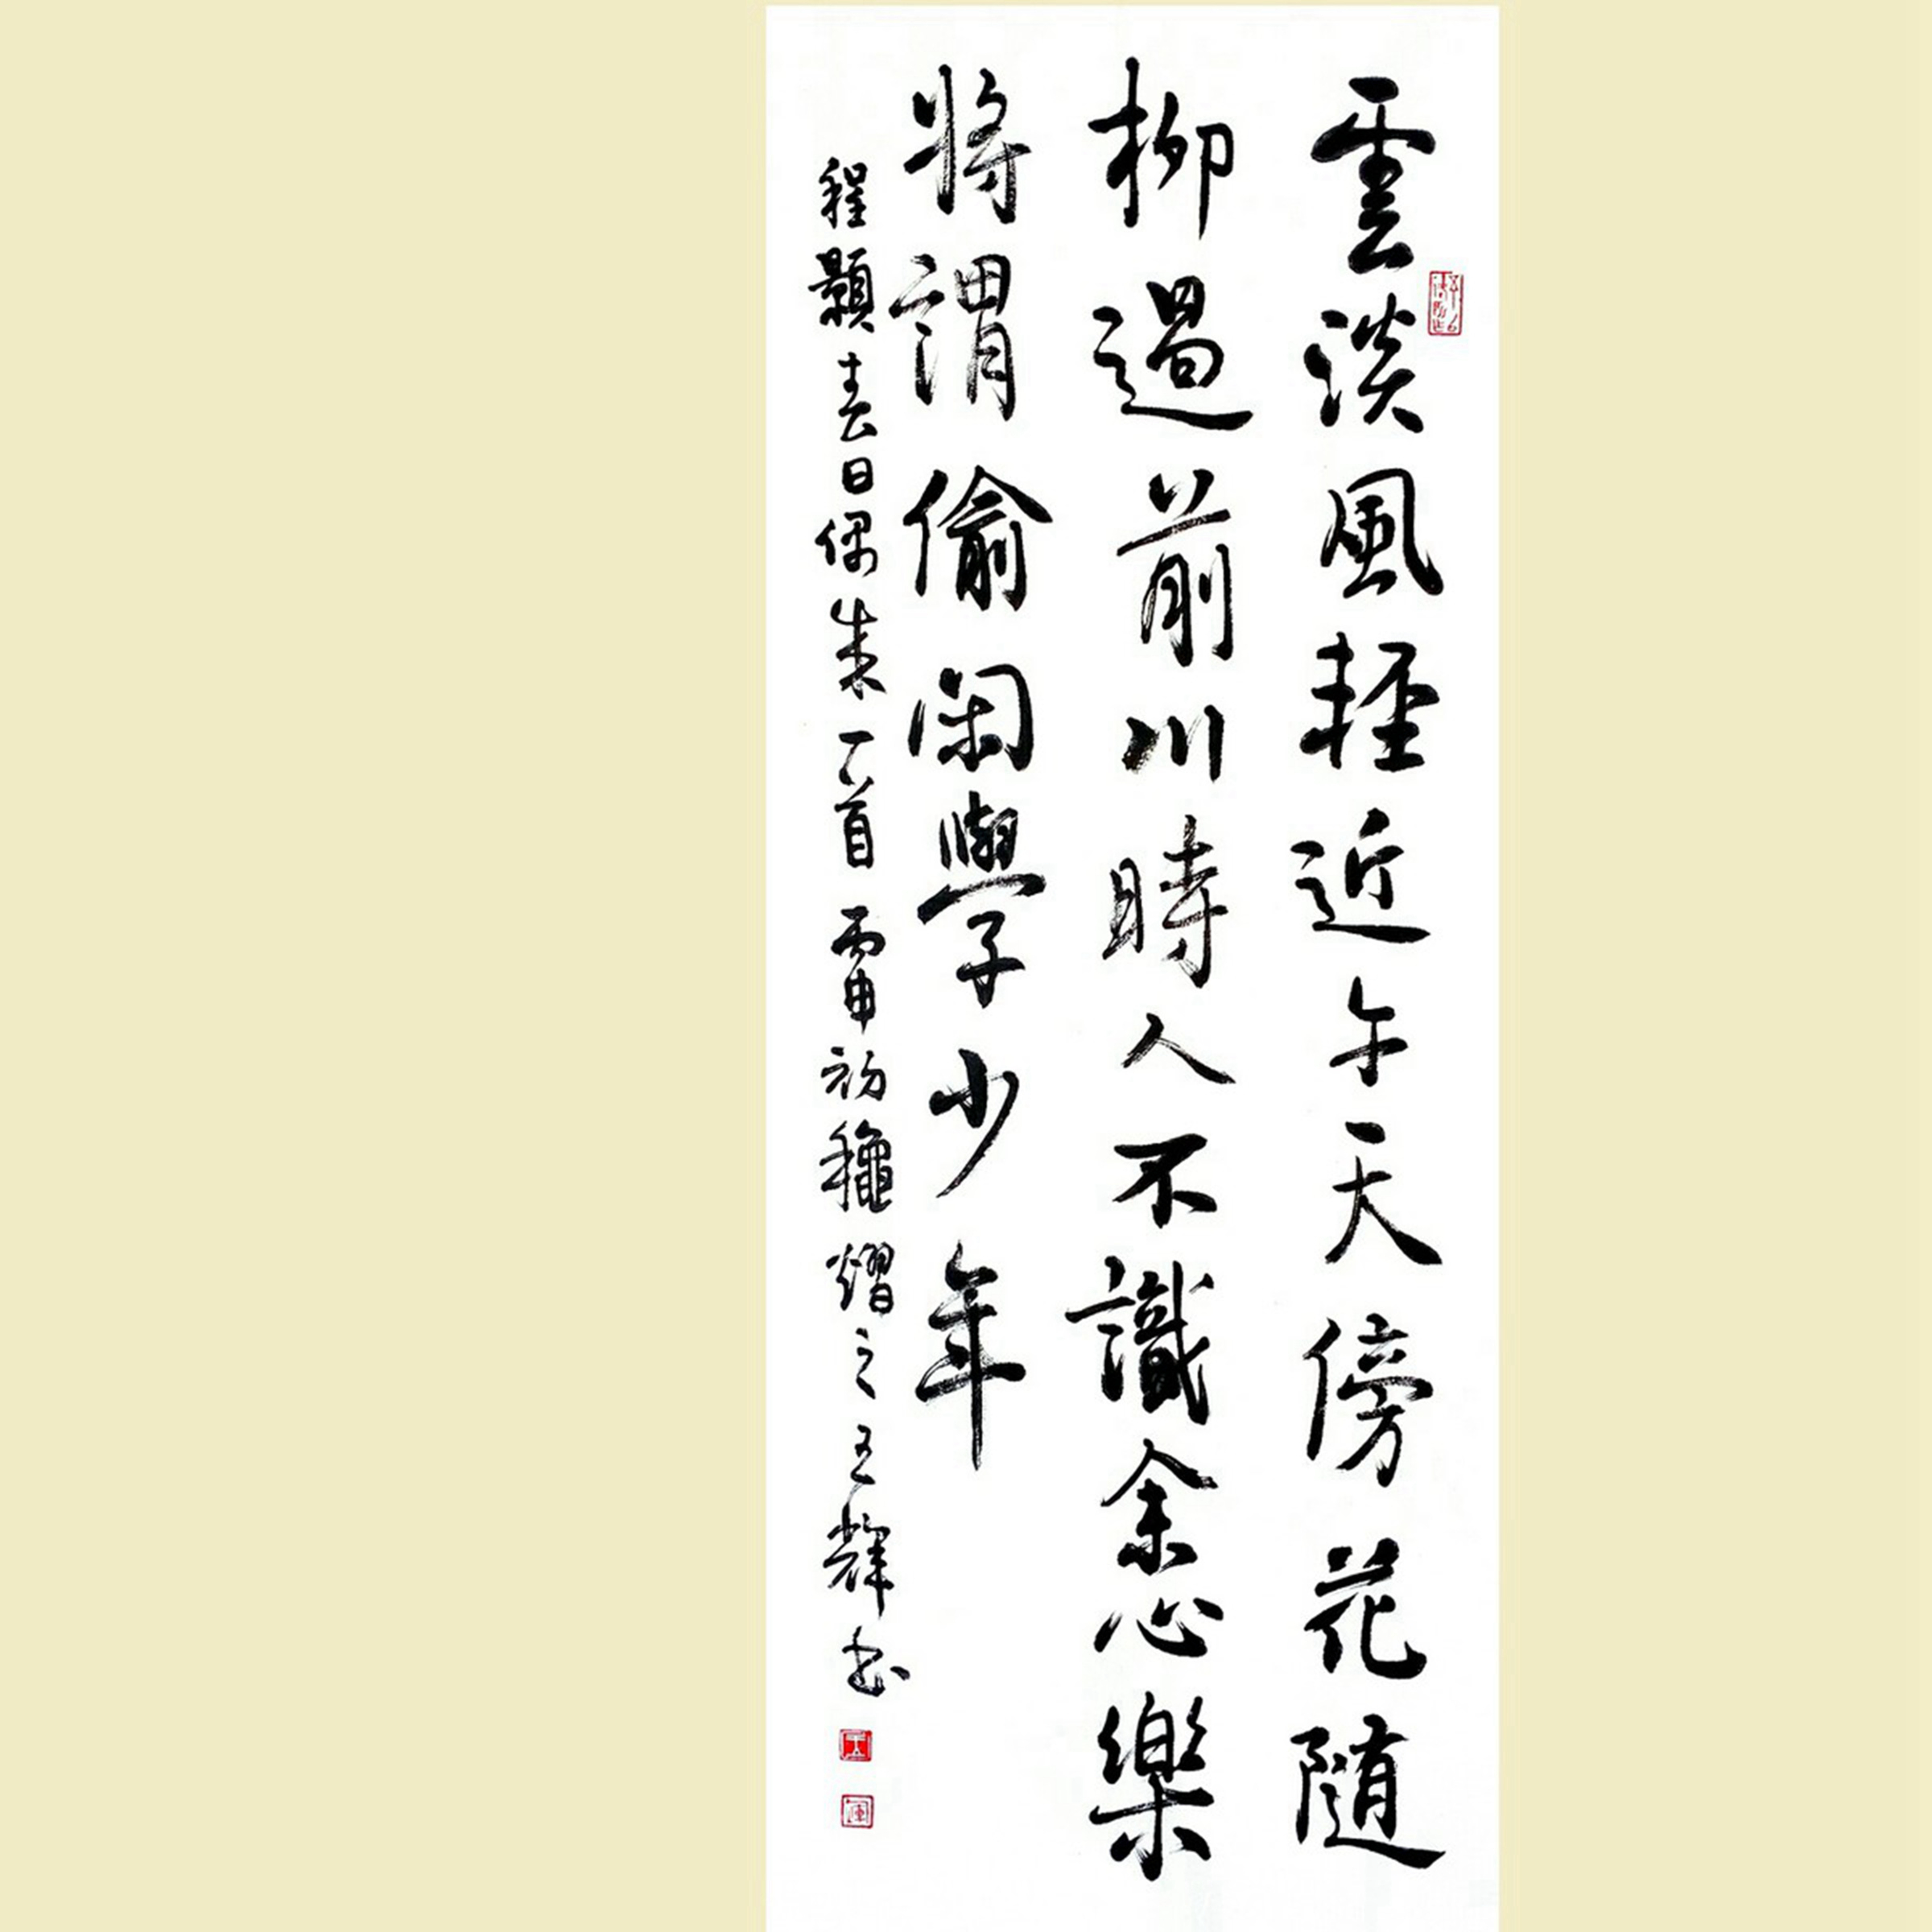 雲淡風輕近午天傍花隨
柳過前川時人不識余心樂
將謂偷閑學少年
程顥春日偶成一首丙申初穐耀之王輝书